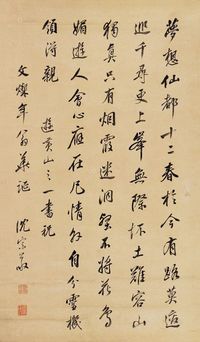 夢想仙都十二春於今有路莫逡
巡千尋更上峯無際抔土難容山
獨真只有烟霞迷洞壑不將花鳥
媚遊人會心應在凡情外自分靈機
領得親
遊黃山之一書祝
文燦年翁華誕
沈宗敬